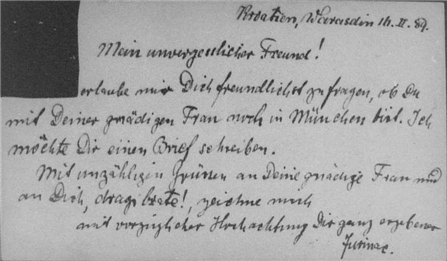 Kroatien, Warasdin 16. II. 89.
Mein unvergesslicher Freund!
erlaube mir Dich freundlichst zu fragen, ob Du
mit Deiner gnädigen Frau noch in München bist. Ich
möchte Dir einen Brief schreiben.
Mit unzähligen Grüssen an Deine gnädige Frau und
an Dich, dragi brate!, zeichne mich
mit vorzüglicher Hochachtung Dir ganz ergebener
Jurinac.